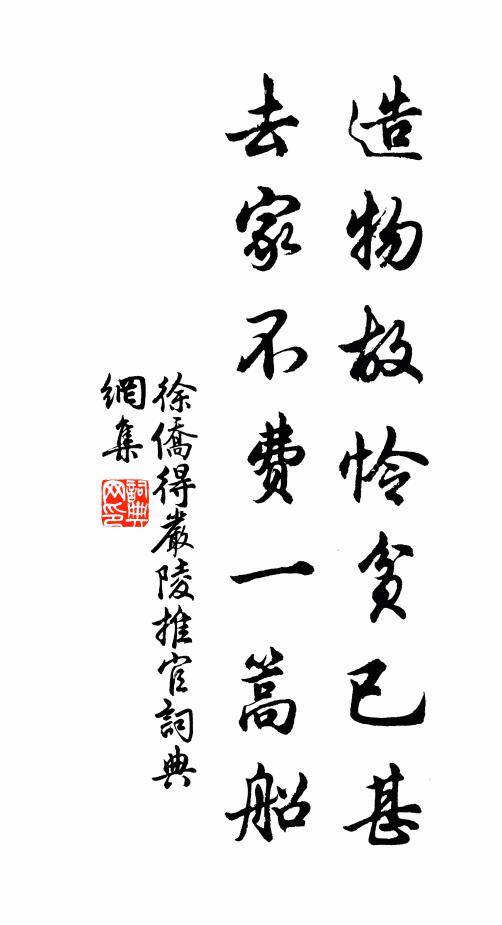 造物故怜貧已甚
去家不費一篙船
徐僑得嚴陵推官詞典
網集
詞典網印